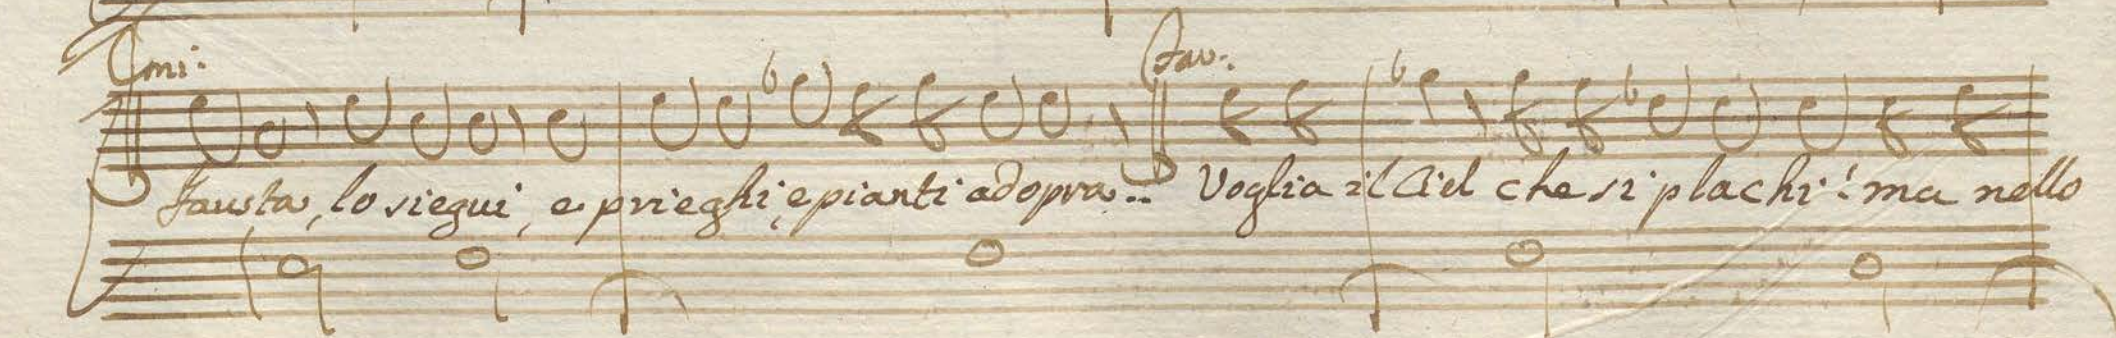 Emi: Fau:
Fausta, lo siegui, e prieghi, e pianti adopra.. Voglia il Ciel che si plachi! ma nello